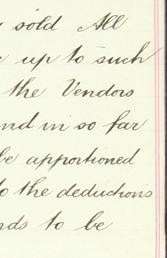 sold All
up to such
the Vendors
nd in so far
be apportioned
to the deductions
nds to be